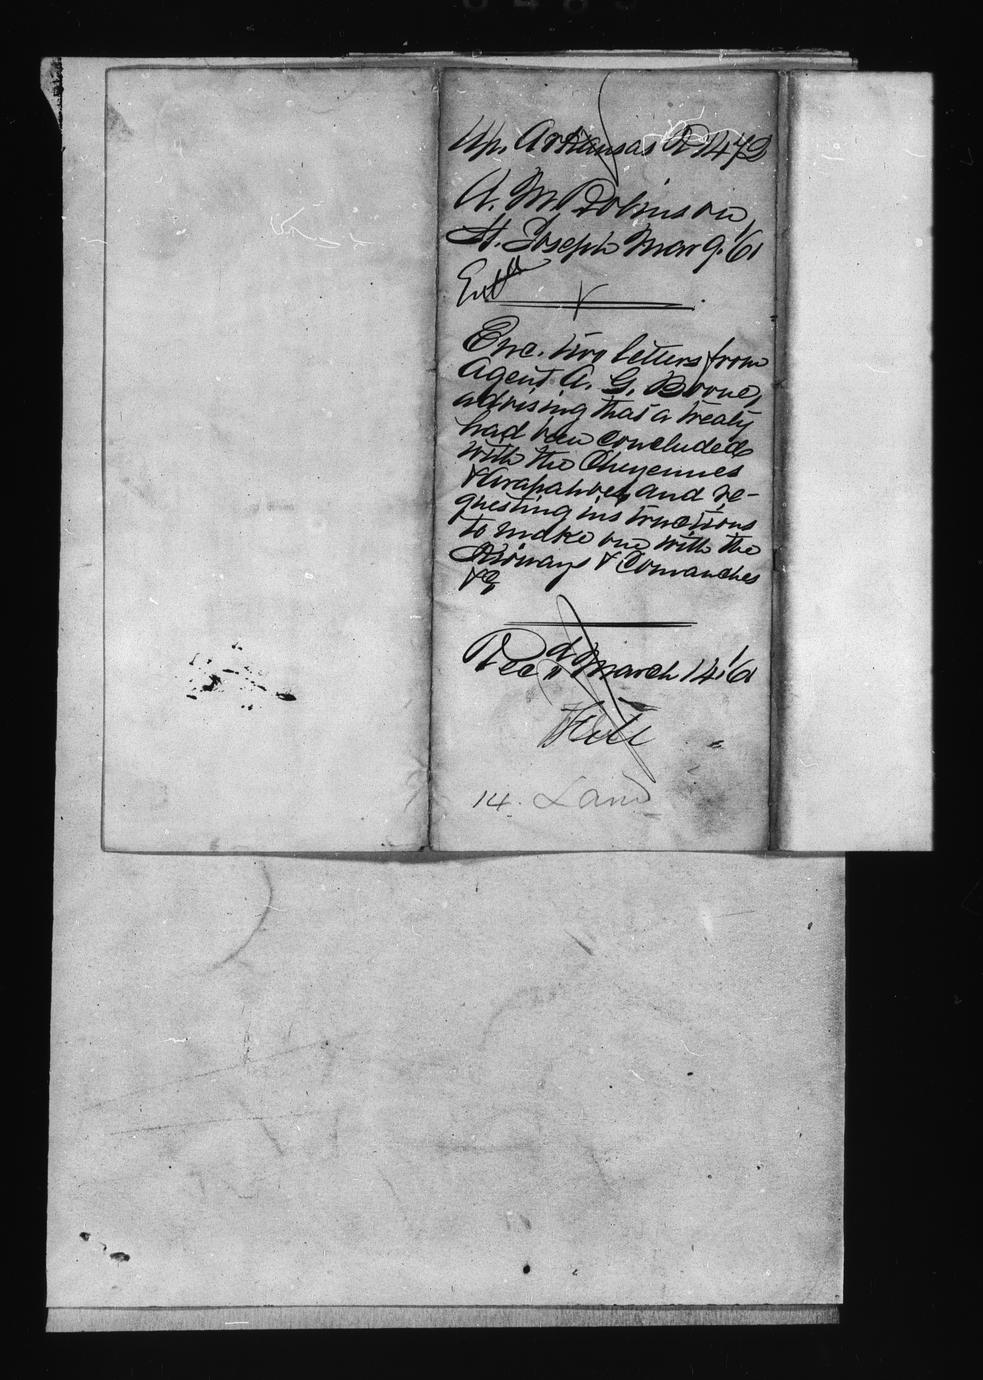 Up. Arkansas R 1473
A. M. Robinson,
St. Joseph Mar 9. '61
Enc. two letters from
Agent A. G. Boone,
advising that a treaty
had been concluded
with the Cheyennes
& Arapahoes, and re-
questing instructions
to make one with the
Kioways & Comanches
&c
Recd March 14. '61
File
14. Land